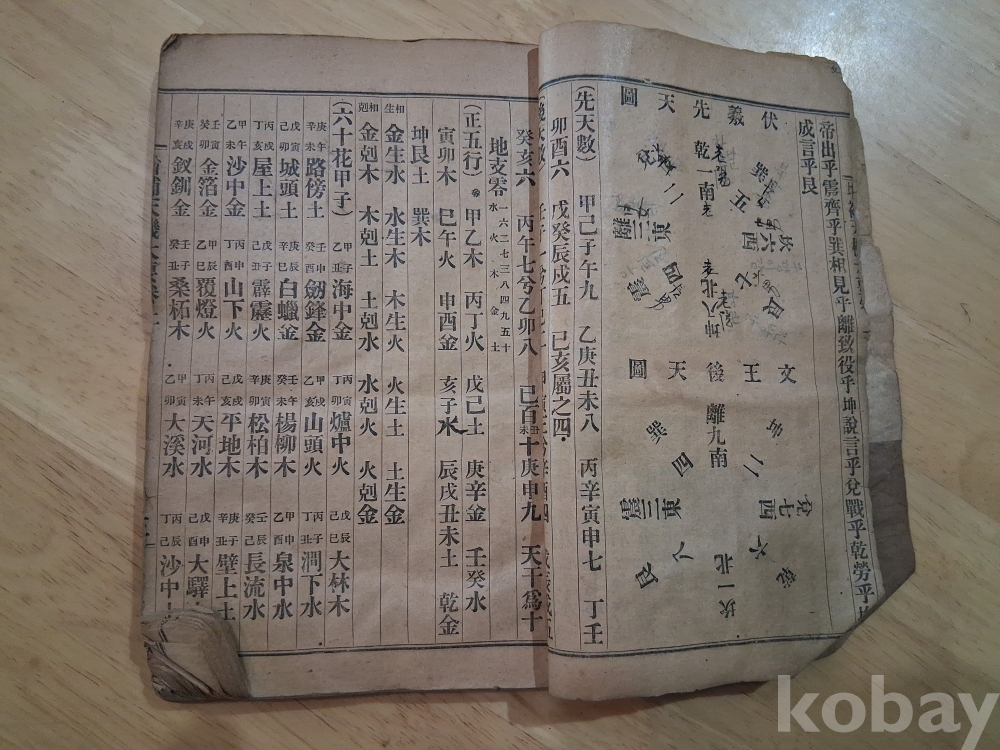 帝出乎震齊乎巽相見乎離致役乎坤說言乎兌戰乎乾勞乎坎
成言乎艮
伏羲先天圖
巽五
坎六西
艮
乾一南
坤八北
兌二
離三東
震四
文王後天圖
坤二
兌七西
乾六
離九南
坎一北
巽四
震三東
艮八
(先天數) 甲己子午九 乙庚丑未八 丙辛寅申七 丁壬
卯酉六 戊癸辰戌五 巳亥屬之四
癸亥六 丙午七兮乙卯八 己百丑未十庚申九 天干爲十
地支零 水一六火二七木三八金四九土五十
(正五行) 甲乙木 丙丁火 戊己土 庚辛金 壬癸水
寅卯木 巳午火 申酉金 亥子水 辰戌丑未土 乾金
坤艮土 巽木
相生 金生水 水生木 木生火 火生土 土生金
相剋 金剋木 木剋土 土剋水 水剋火 火剋金
(六十花甲子) 甲子乙丑海中金 丙寅丁卯爐中火 戊辰己巳大林木
庚午辛未路傍土 壬申癸酉劒鋒金 甲戌乙亥山頭火 丙子丁丑澗下水
戊寅己卯城頭土 庚辰辛巳白蠟金 壬午癸未楊柳木 甲申乙酉泉中水
丙戌丁亥屋上土 戊子己丑霹靂火 庚寅辛卯松柏木 壬辰癸巳長流水
甲午乙未沙中金 丙申丁酉山下火 戊戌己亥平地木 庚子辛丑壁上土
壬寅癸卯金箔金 甲辰乙巳覆燈火 丙午丁未天河水 戊申己酉大驛
庚戌辛亥釵釧金 壬子癸丑桑柘木 甲寅乙卯大溪水 丙辰丁巳沙中
kobay